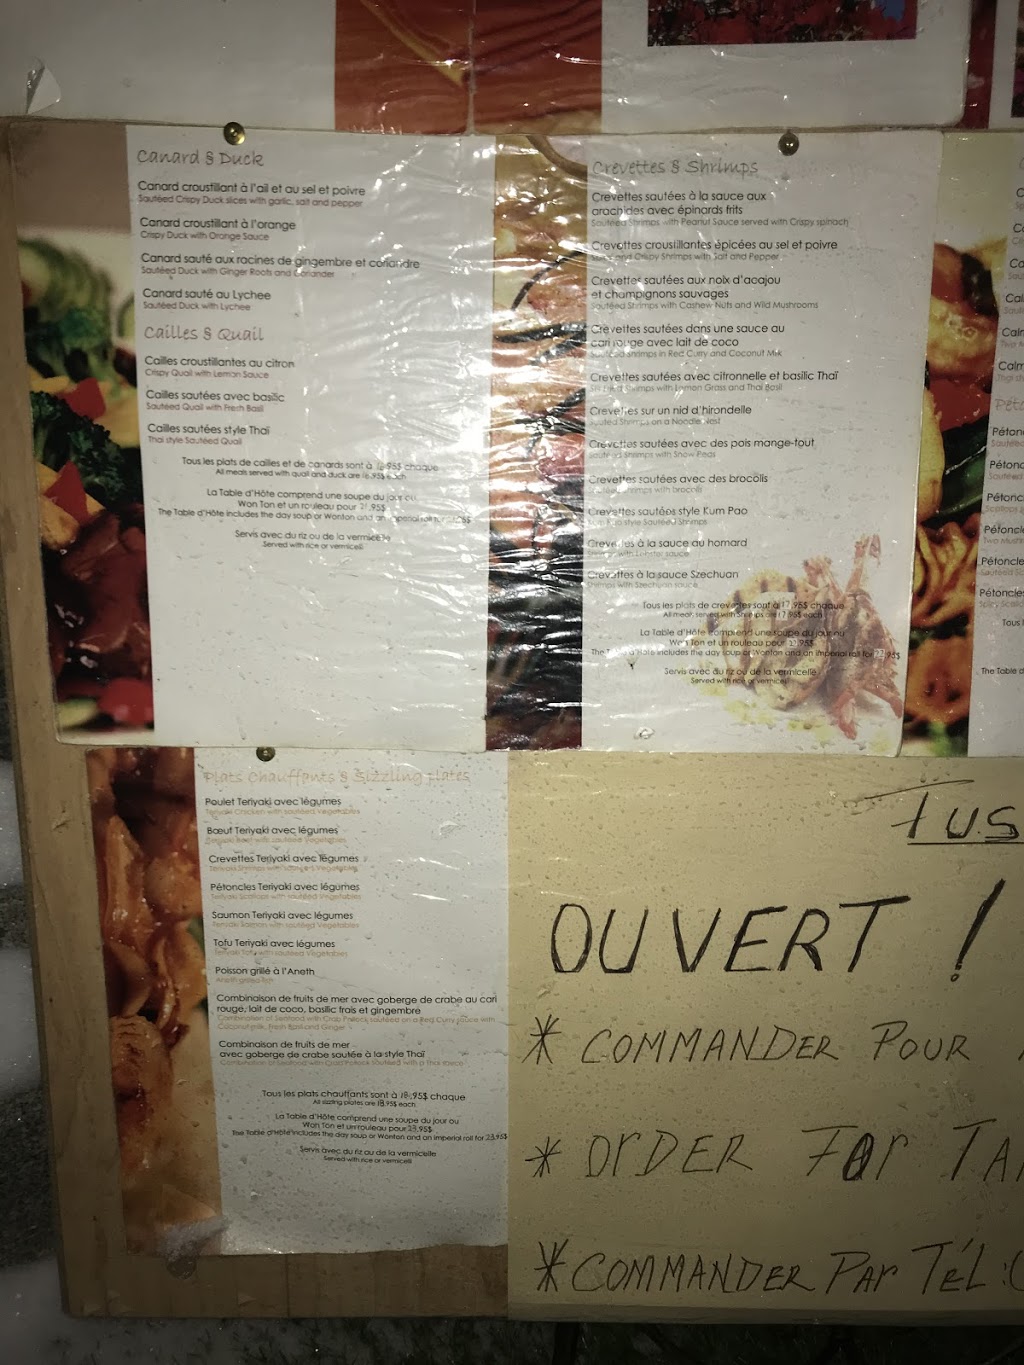 Canard & Duck
Canard croustillant à l'ail et au sel et poivre
Sautéed Crispy Duck slices with garlic, salt and pepper
Canard croustillant à l'orange
Crispy Duck with Orange Sauce
Canard sauté aux racines de gingembre et coriandre
Sautéed Duck with Ginger Roots and Coriander
Canard sauté au Lychee
Sautéed Duck with Lychee
Cailles & Quail
Cailles croustillantes au citron
Crispy Quail with Lemon Sauce
Cailles sautées avec basilic
Sautéed Quail with Fresh Basil
Cailles sautées style Thaï
Thai style Sautéed Quail
Tous les plats de cailles et de canards sont à 18,95$ chaque
All meals served with quail and duck are 18,95$ each
La Table d'Hôte comprend une soupe du jour ou
Won Ton et un rouleau pour
The Table d'Hôte includes the day soup or Wonton and an imperial roll for
Servis avec du riz ou de la vermicelle
Served with rice or vermicelli
Crevettes & Shrimps
Crevettes sautées à la sauce aux
arachides avec épinards frits
Sautéed Shrimps with Peanut Sauce served with Crispy spinach
Crevettes croustillantes épicées au sel et poivre
and Crispy Shrimps with Salt and Pepper
Crevettes sautées aux noix d'acajou
et champignons sauvages
Sautéed Shrimps with Cashew Nuts and Wild Mushrooms
Crevettes sautées dans une sauce au
cari rouge avec lait de coco
Sautéed Shrimps in Red Curry and Coconut Milk
Crevettes sautées avec citronnelle et basilic Thaï
Shrimps with Lemon Grass and Thai Basil
Crevettes sur un nid d'hirondelle
Sautéed Shrimps on a Noodle Nest
Crevettes sautées avec des pois mange-tout
Sautéed Shrimps with Snow Peas
Crevettes sautées avec des brocolis
Sautéed Shrimps with brocolis
Crevettes sautées style Kum Pao
Kum Pao style Sautéed Shrimps
Crevettes à la sauce au homard
Shrimps with Lobster sauce
Crevettes à la sauce Szechuan
Shrimps with Szechuan sauce
Tous les plats de crevettes sont à 17,95$ chaque
All meals served with Shrimps are 17,95$ each
La Table d'Hôte comprend une soupe du jour ou
Won Ton et un rouleau pour 22,95$
The Table d'Hôte includes the day soup or Wonton and an imperial roll for 22,95$
Servis avec du riz ou de la vermicelle
Served with rice or vermicelli
Plats Chauffants & Sizzling plates
Poulet Teriyaki avec légumes
Teriyaki Chicken with sautéed Vegetables
Bœuf Teriyaki avec légumes
Teriyaki Beef with sautéed Vegetables
Crevettes Teriyaki avec légumes
Teriyaki Shrimps with sautéed Vegetables
Pétoncles Teriyaki avec légumes
Teriyaki Scallops with sautéed Vegetables
Saumon Teriyaki avec légumes
Teriyaki Salmon with sautéed Vegetables
Tofu Teriyaki avec légumes
Teriyaki Tofu with sautéed Vegetables
Poisson grillé à l'Aneth
Combinaison de fruits de mer avec goberge de crabe au cari
rouge, lait de coco, basilic frais et gingembre
Combination of Seafood with Crab Pollock sautéed on a Red Curry sauce with
Coconut milk, Fresh Basil and Ginger
Combinaison de fruits de mer
avec goberge de crabe sautée à la style Thaï
Combination of Seafood with Crab Pollock sautéed with a Thai sauce
Tous les plats chauffants sont à 18,95$ chaque
All sizzling plates are 18,95$ each
La Table d'Hôte comprend une soupe du jour ou
Won Ton et un rouleau pour 23,95$
The Table d'Hôte includes the day soup or Wonton and an imperial roll for 23,95$
Servis avec du riz ou de la vermicelle
Served with rice or vermicelli
OUVERT !
* COMMANDER POUR
* ORDER FOR
* COMMANDER PAR TÉL :